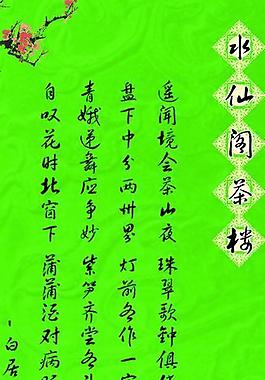 水仙阁茶楼
遥闻境会茶山夜 珠翠歌钟俱
盘下中分两州界 灯前各作一
青娥递舞应争妙 紫笋齐尝各
自叹花时北窗下 蒲蒲酒对病
--白居